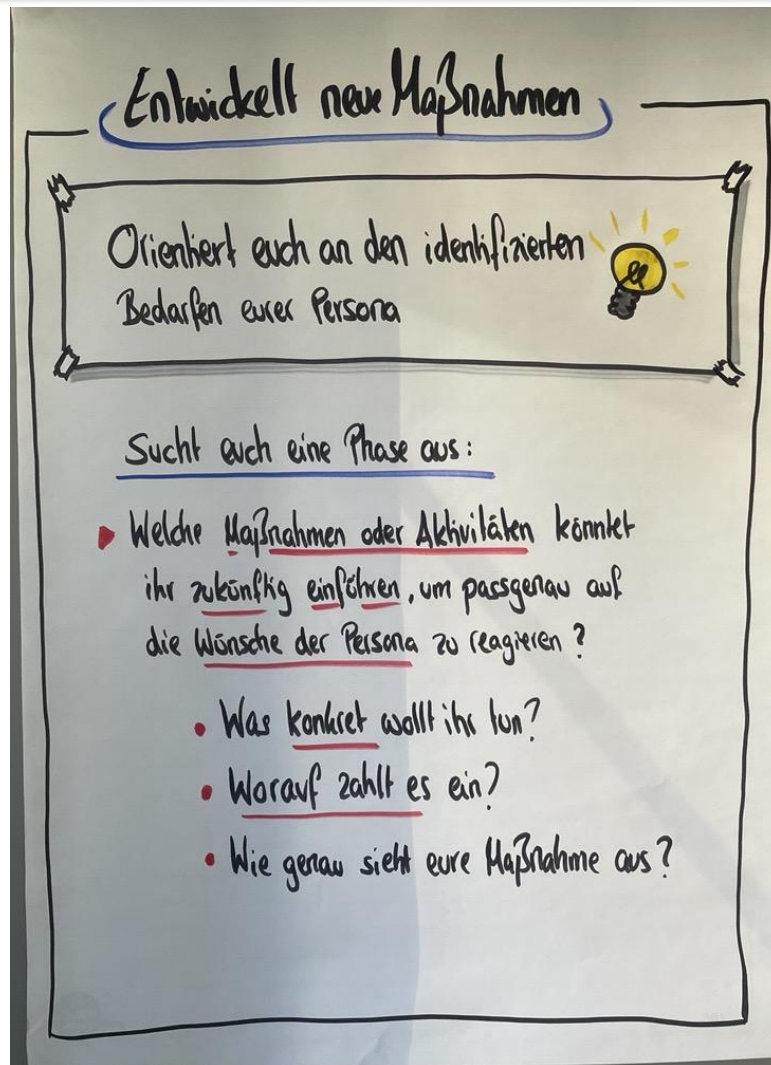 Entwickelt neue Maßnahmen
Orientiert euch an den identifizierten
Bedarfen eurer Persona
Sucht euch eine Phase aus:
Welche Maßnahmen oder Aktivitäten könntet
ihr zukünftig einführen, um passgenau auf
die Wünsche der Persona zu reagieren?
• Was konkret wollt ihr tun?
• Worauf zahlt es ein?
• Wie genau sieht eure Maßnahme aus?